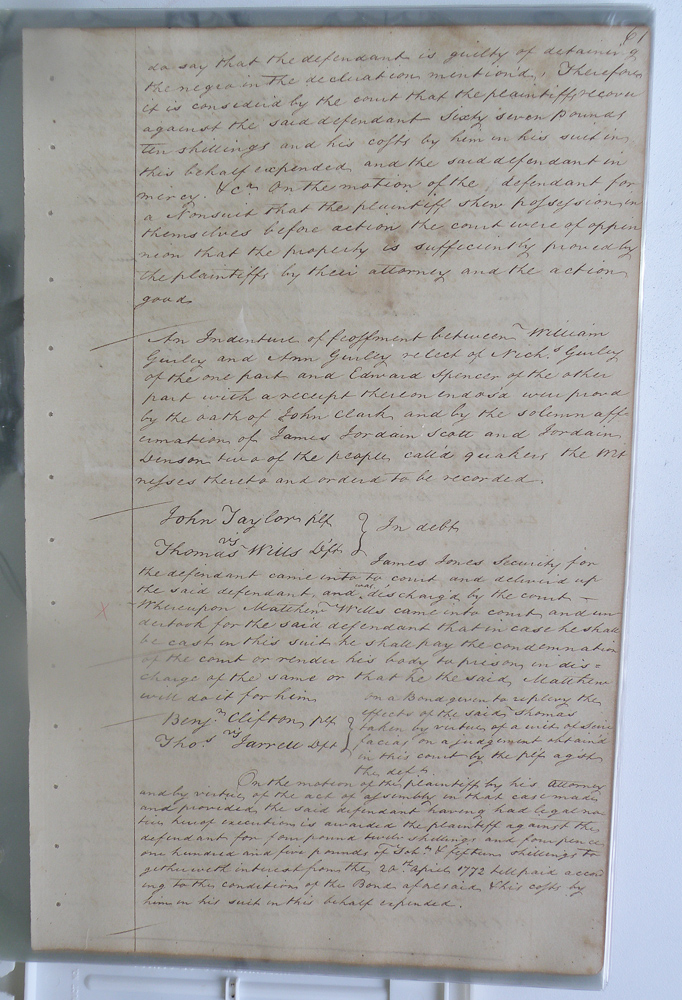 61
do say that the defendant is guilty of detaining
the negro in the declaration mentiond, Therefore
it is considerd by the court that the plaintiffs recover
against the said defendant Sixty seven Pounds
ten shillings and his costs by him in his suit in
this behalf expended and the said defendant in
mercy. &ca. On the motion of the defendant for
a Nonsuit that the plaintiff shew possession in
themselves before action the court were of oppin
neon that the property is sufficiently proved by
the plaintiffs by their attorney and the action
good
An Indenture of feoffment between William
Gurley and Ann Gurley relect of Nichs Gurley
of the one part and Edward Spencer of the other
part with a receipt thereon endosd were provd
by the oath of John Clark and by the solemn aff
irmation of James Jordain Scott and Jordain
Denson two of the people calld quakers the wit
nesses thereto and orderd to be recorded
John Taylor plf } In debt
vs
Thomas Wills Deft
James Jones Security for
the defendant came into to court and deliverd up
the said defendant and was discharg'd by the court –
Whereupon Matthew Wills came into court and un
dertook for the said defendant that in case he shall
be cast in this suit he shall pay the condemnation
of the court or render his body to prison in dis=
charge of the same or that he the said Matthew
will do it for him
Benjn Clifton plf
vs
Thos Jarrell Deft
}
on a Bond given to replevy the
effects of the said Thomas
taken by virtue of a writ of
facias on a judgement obtain'd
in this court by the plf agst
the deft.
On the motion of the plaintiff by his attorney
and by virtue of the act of assembly in that case made
and provided the said defendant haveing had legal no
tice hereof execution is awarded the plaintiff against the
defendant for four pound twelve shillings and four pence
one hundred and five pounds of Tobo. & fifteen shillings to
gether with interest from the 20th april 1772 till paid accord
ing to the condition of the Bond aforesaid & his costs by
him in his suit in this behalf expended.